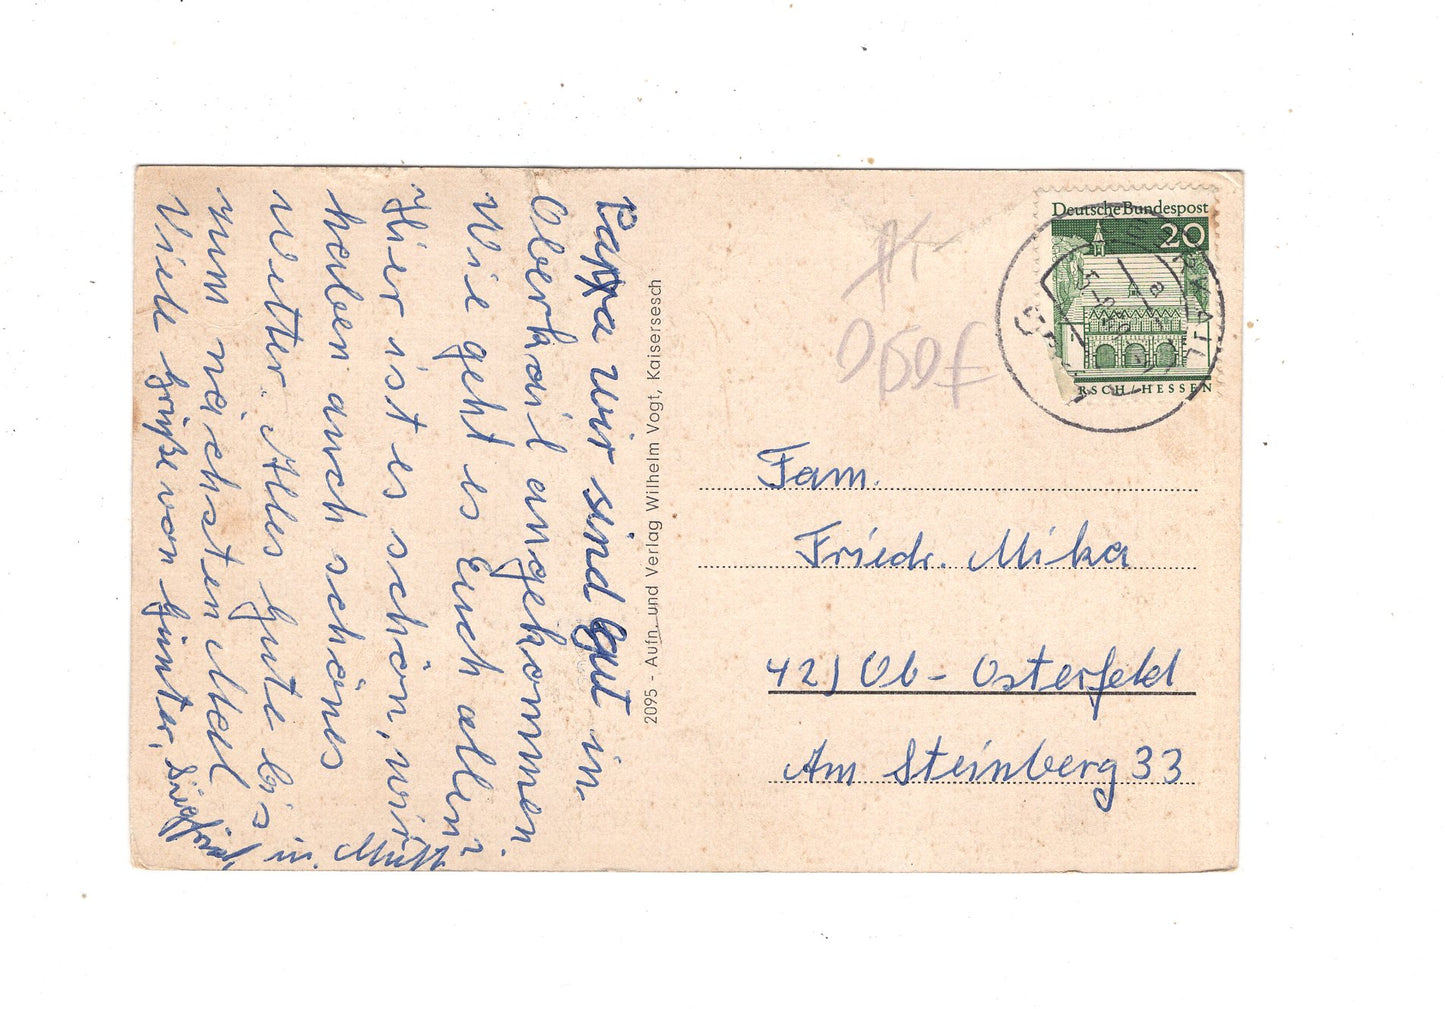 Pappa wir sind gut in
Oberkail angekommen.
Wie geht es Euch allen?
Hier ist es schön, wir
haben auch schönes
Wetter. Alles gute bis
zum nächsten Mal
Viele Grüße von Günter, Siegfried
in. Mutti
2095 - Aufn. und Verlag Wilhelm Vogt, Kaisersesch
Deutsche Bundespost
20
RSCH / HESSEN
Fam.
Friedr. Mika
42) Ob - Osterfeld
Am Steinberg 33